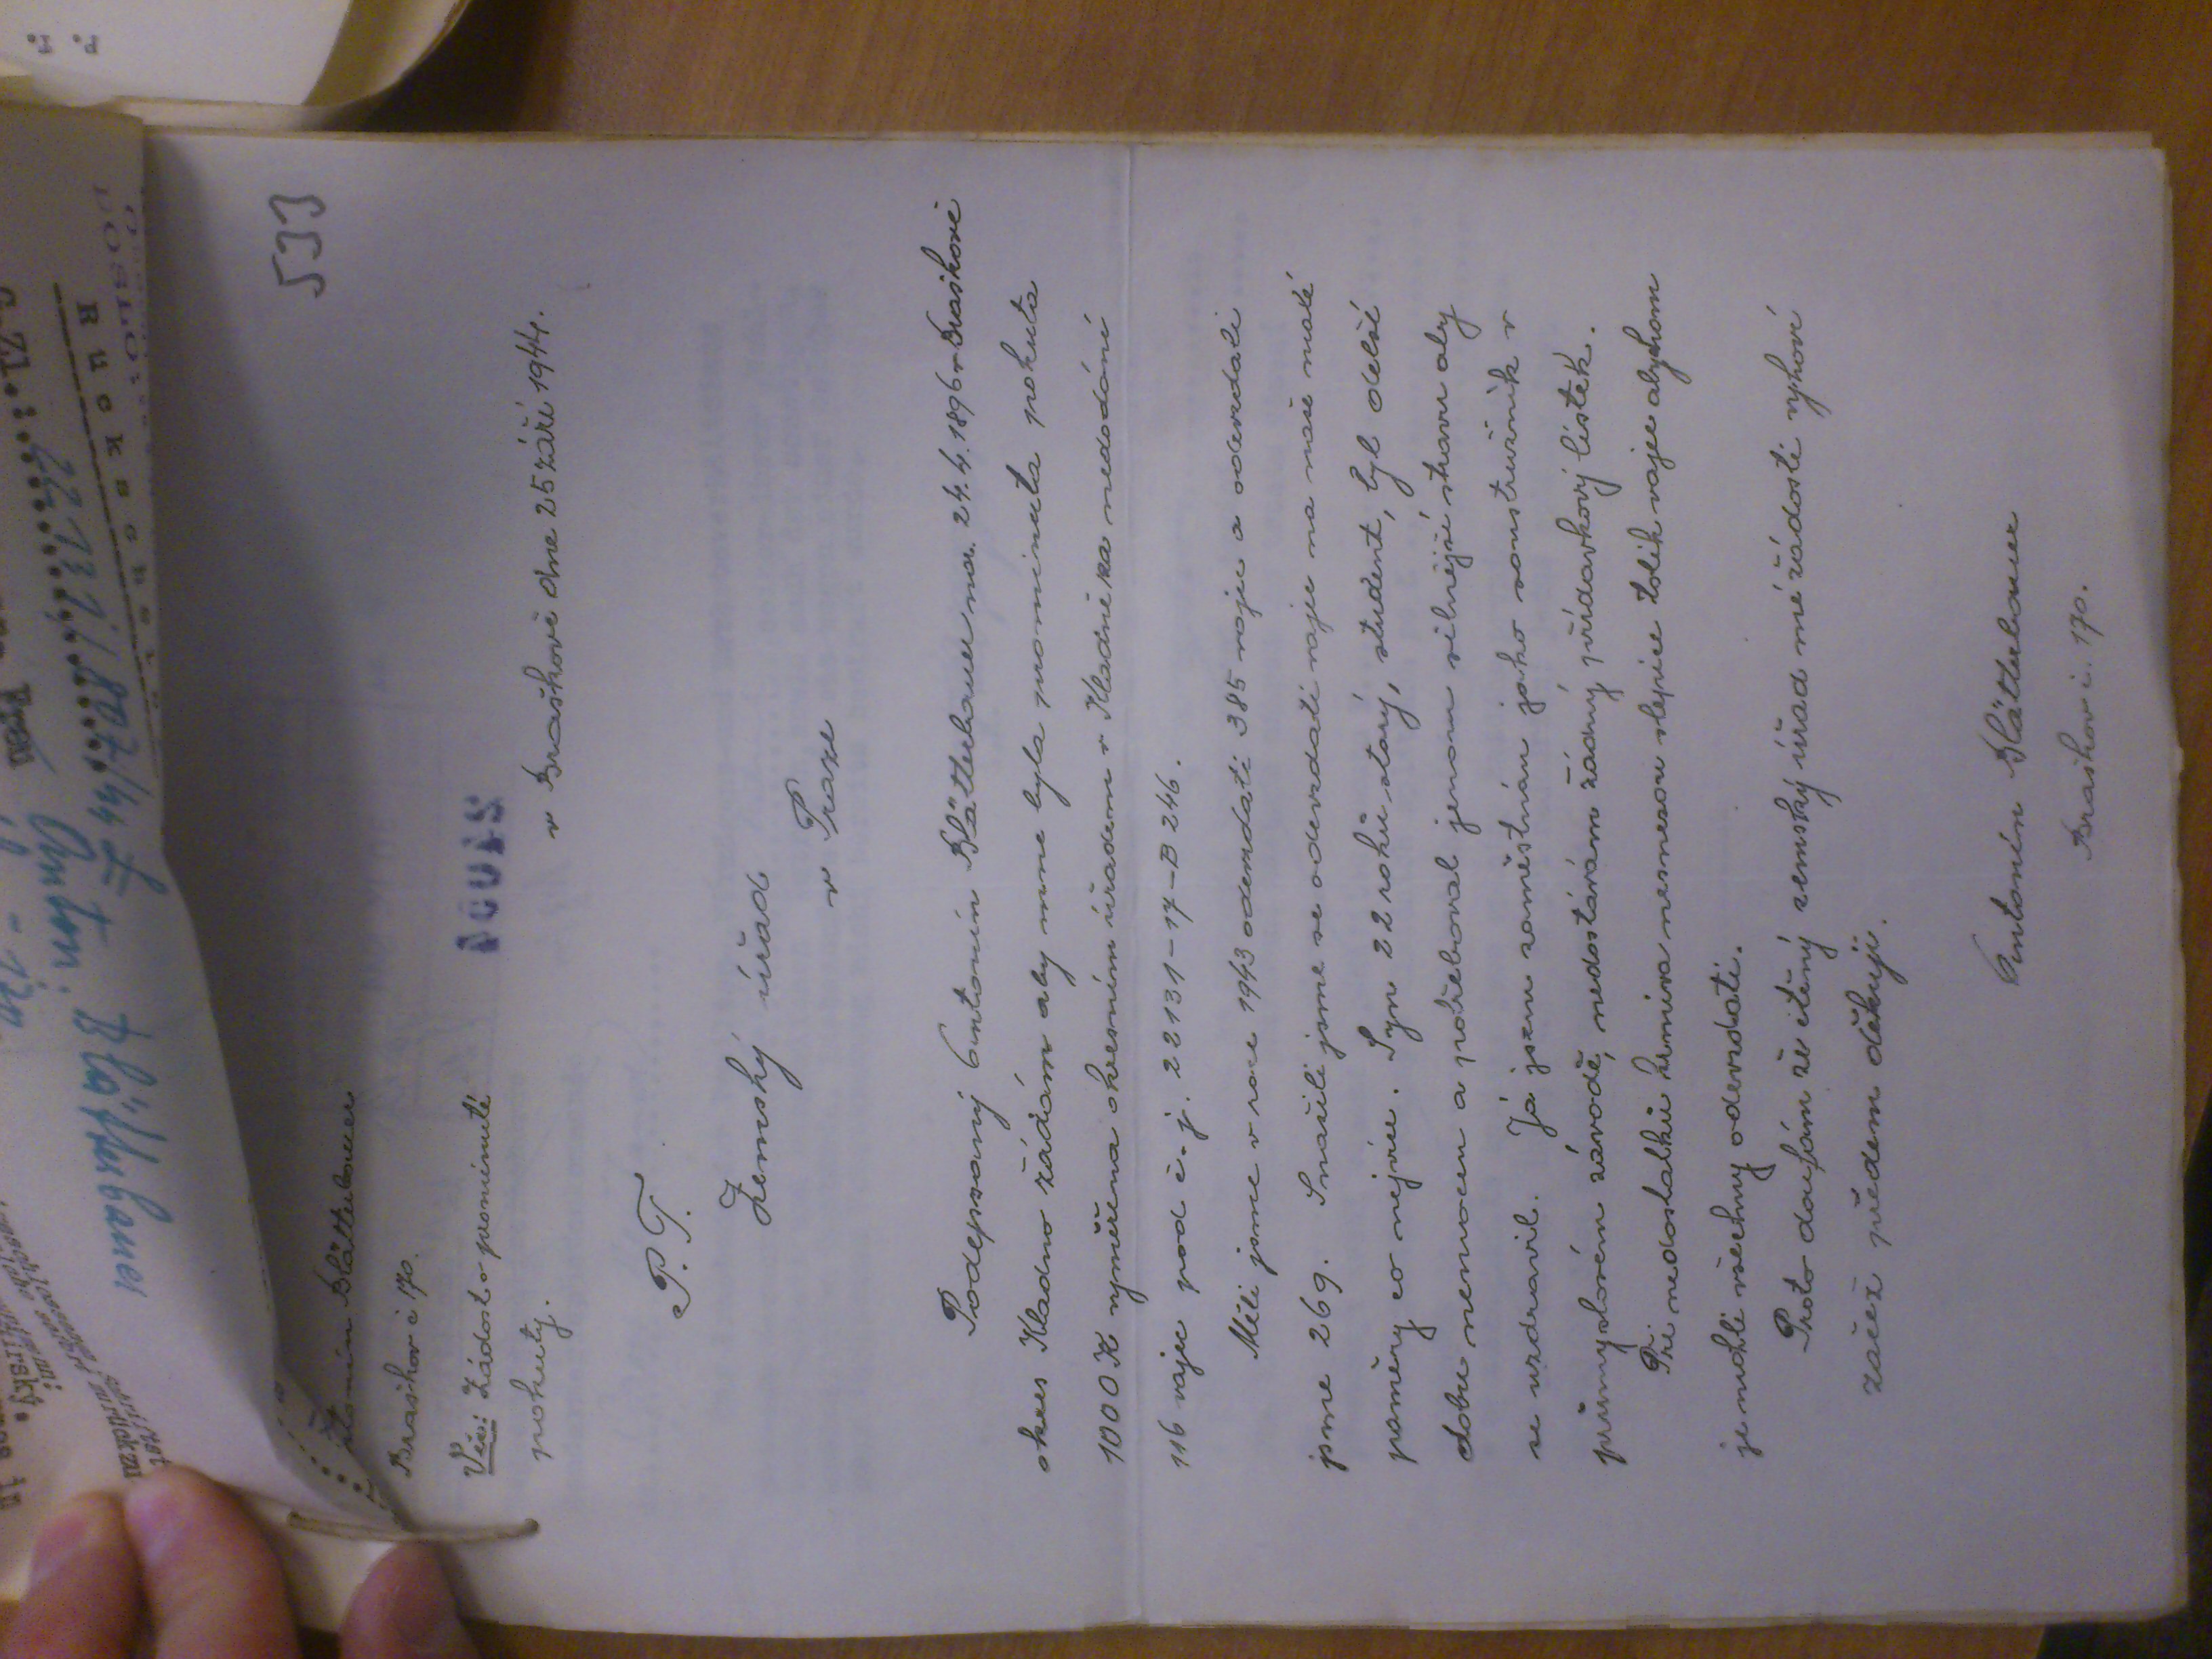 533
Antonín Blätterbauer
Braškov č 170.
Věc: Žádost o prominuté
pokuty.
v Braškově dne 25 září 1944.
P. T.
Zemský úřad
v Praze
Podepsaný Antonín Blätterbauer nar. 24.4.1896 v Braškově
okres Kladno žádám aby mne byla prominuta pokuta
1000 K vyměřena okresním úřadem v Kladně za nedodání
116 vajec pod č. j. 22131-17-B 246.
Měli jsme v roce 1943 odevzdati 385 vajec a odevzdali
jsme 269. Snažili jsme se odevzdati vajec na naše malé
poměry co nejvíce. Syn 22 roků starý, student, byl delší
dobu nemocen a potřeboval jenom silnější stravu aby
se uzdravil. Já jsem zaměstnán jako soustružník v
průmyslovém závodě, nedostávám žádný přídavkový lístek.
Při nedostatků krmiva nesnesou slepice tolik vajec abychom
je mohli všechny odevzdati.
Proto doufám že ctěný zemský úřad mé žádosti vyhoví
začež předem děkuji.
Antonín Blätterbauer
Braškov č. 170.
P. T.
Rückscheine
22131/807/44
Anton. Blätterbauer
Frau
zurückzu